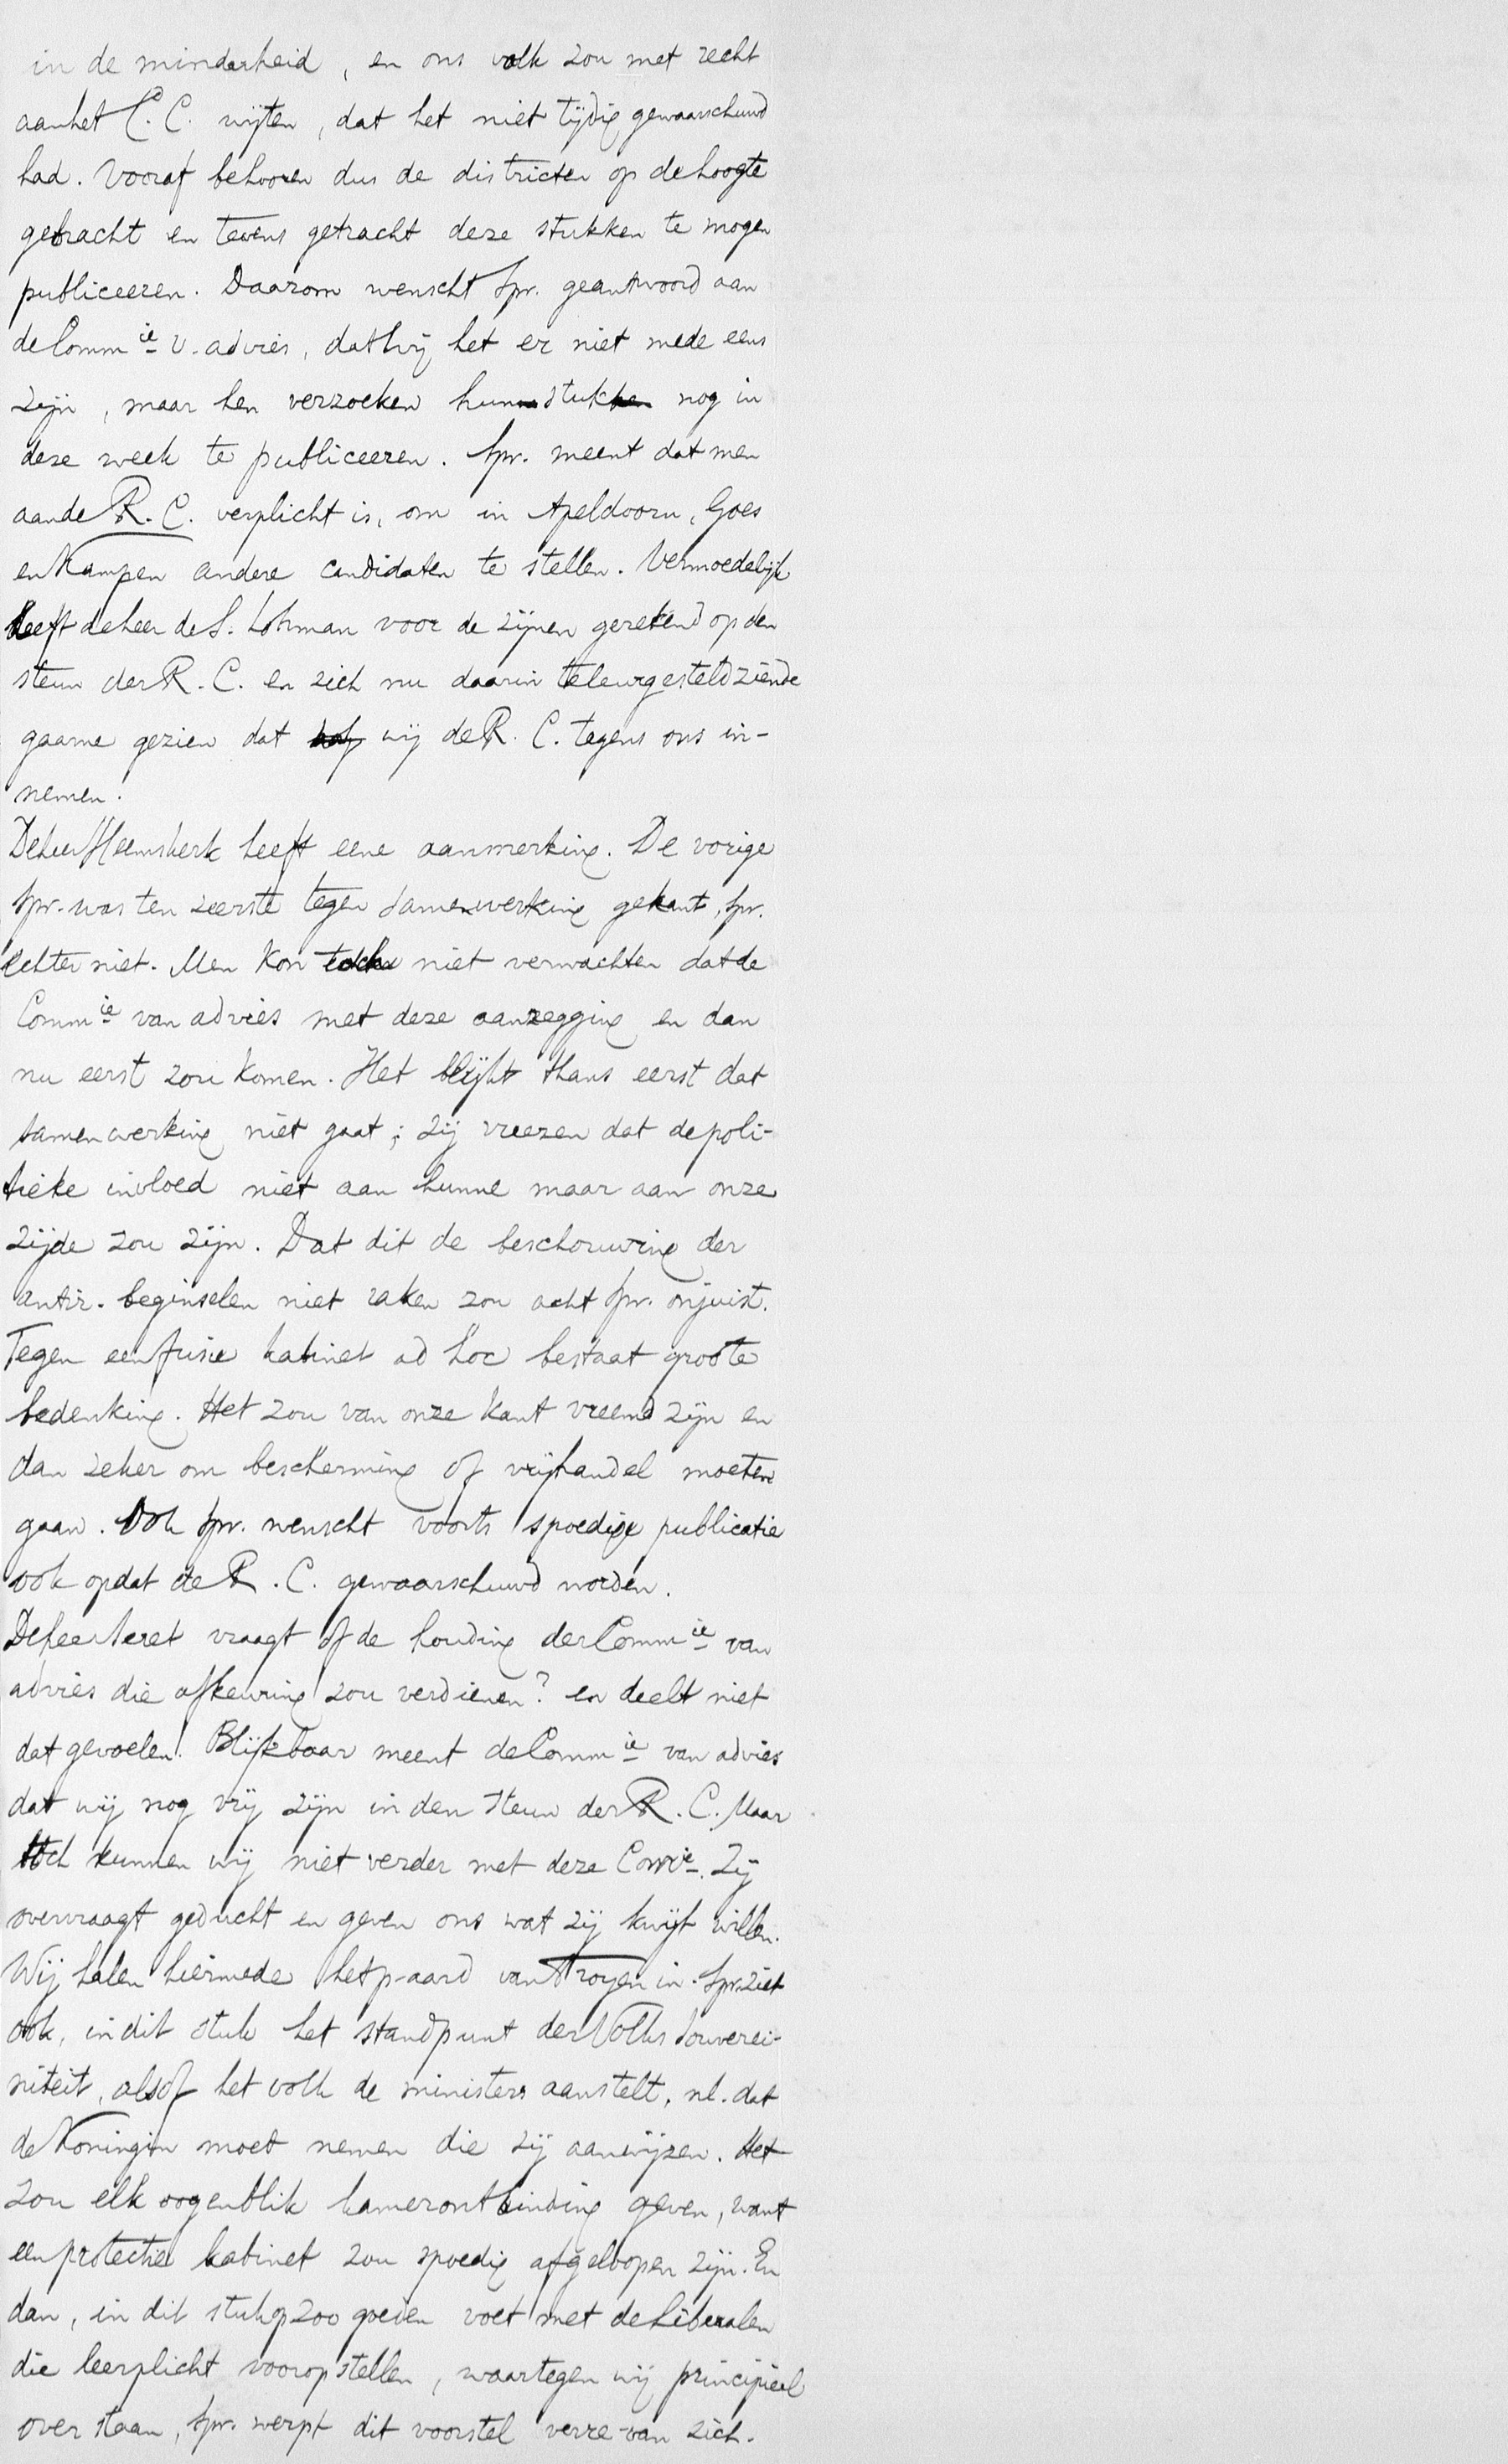 in de minderheid, en ons volk zou met recht
aan het C.C. wijten, dat het niet tijdig gewaarschuwd
had. Vooraf behooren dus de districten op de hoogte
gebracht en tevens getracht deze stukken te mogen
publiceeren. Daarom wenscht Spr. geantwoord aan
de Commie v. advies, dat wij het er niet mede eens
zijn, maar hen verzoeken hun stuk nog in
deze week te publiceeren. Spr. meent dat men
aan de R.C. verplicht is, om in Apeldoorn, Goes
en Kampen andere candidaten te stellen. Vermoedelijk
heeft de heer de S. Lohman voor de zijnen gerekend op den
steun der R.C. en zich nu daarin teleurgesteld ziende
gaarne gezien dat wij de R.C. tegens ons in-
nemen.
De heer Heemskerk heeft eene aanmerking. De vorige
Spr. was ten zeerste tegen samenwerking gekant, Spr.
echter niet. Men kon niet verwachten dat de
Commie van advies met deze aanzegging en dan
nu eerst zou komen. Het blijkt thans eerst dat
samenwerking niet gaat; zij vreezen dat de poli-
tieke invloed niet aan hunne maar aan onze
zijde zou zijn. Dat dit de beschouwing der
antir. beginselen niet raken zou acht Spr. onjuist.
Tegen een fusie kabinet ad hoc bestaat groote
bedenking. Het zou van onze kant vreemd zijn en
dan zeker om bescherming of vrijhandel moeten
gaan. Ook Spr. wenscht voorts spoedige publicatie
ook opdat de R.C. gewaarschuwd worden.
De heer Seret vraagt of de houding der Commie van
advies die afkeuring zou verdienen? en deelt niet
dat gevoelen! Blijkbaar meent de Commie van advies
dat wij nog vrij zijn in den steun der R.C. Maar
toch kunnen wij niet verder met deze Comie. Zij
overvraagt geducht en geven ons wat zij kwijt willen.
Wij halen hiermede het paard van Troyen in. Spr. ziet
ook, in dit stuk het standpunt der Volks souverei-
niteit, alsof het volk de ministers aanstelt, nl. dat
de Koningin moet nemen die zij aanwijzen. Het
zou elk oogenblik kamerontbinding geven, want
een protectie kabinet zou spoedig afgeloopen zijn. En
dan, in dit stuk op zoo goeden voet met de liberalen
die leerplicht voorop stellen, waartegen wij principieel
over staan, Spr. werpt dit voorstel verre van zich.